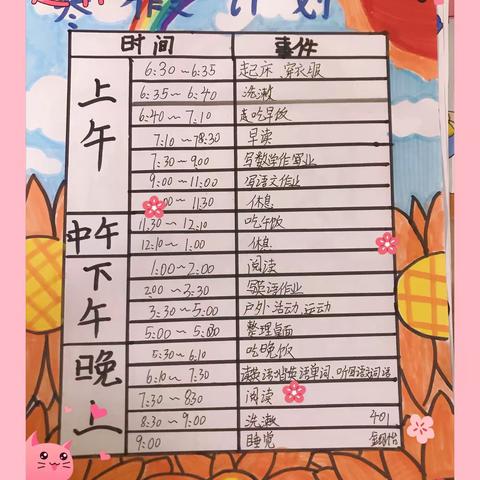 寒假计划
时间 事件
上午
6:30～6:35 起床、穿衣服
6:35～6:40 洗漱
6:40～7:10 去吃早饭
7:10～7:30 早读
7:30～9:00 写数学作业
9:00～11:00 写语文作业
～11:30 休息
中午
11:30～12:10 吃午饭
12:10～1:00 休息
下午
1:00～2:00 阅读
2:00～3:30 写英语作业
3:30～5:00 户外活动、运动
5:00～5:30 整理桌面
晚上
5:30～6:10 吃晚饭
6:10～7:30 英语单词、听
7:30～8:30 阅读
8:30～9:00 洗漱
9:00 睡觉
401